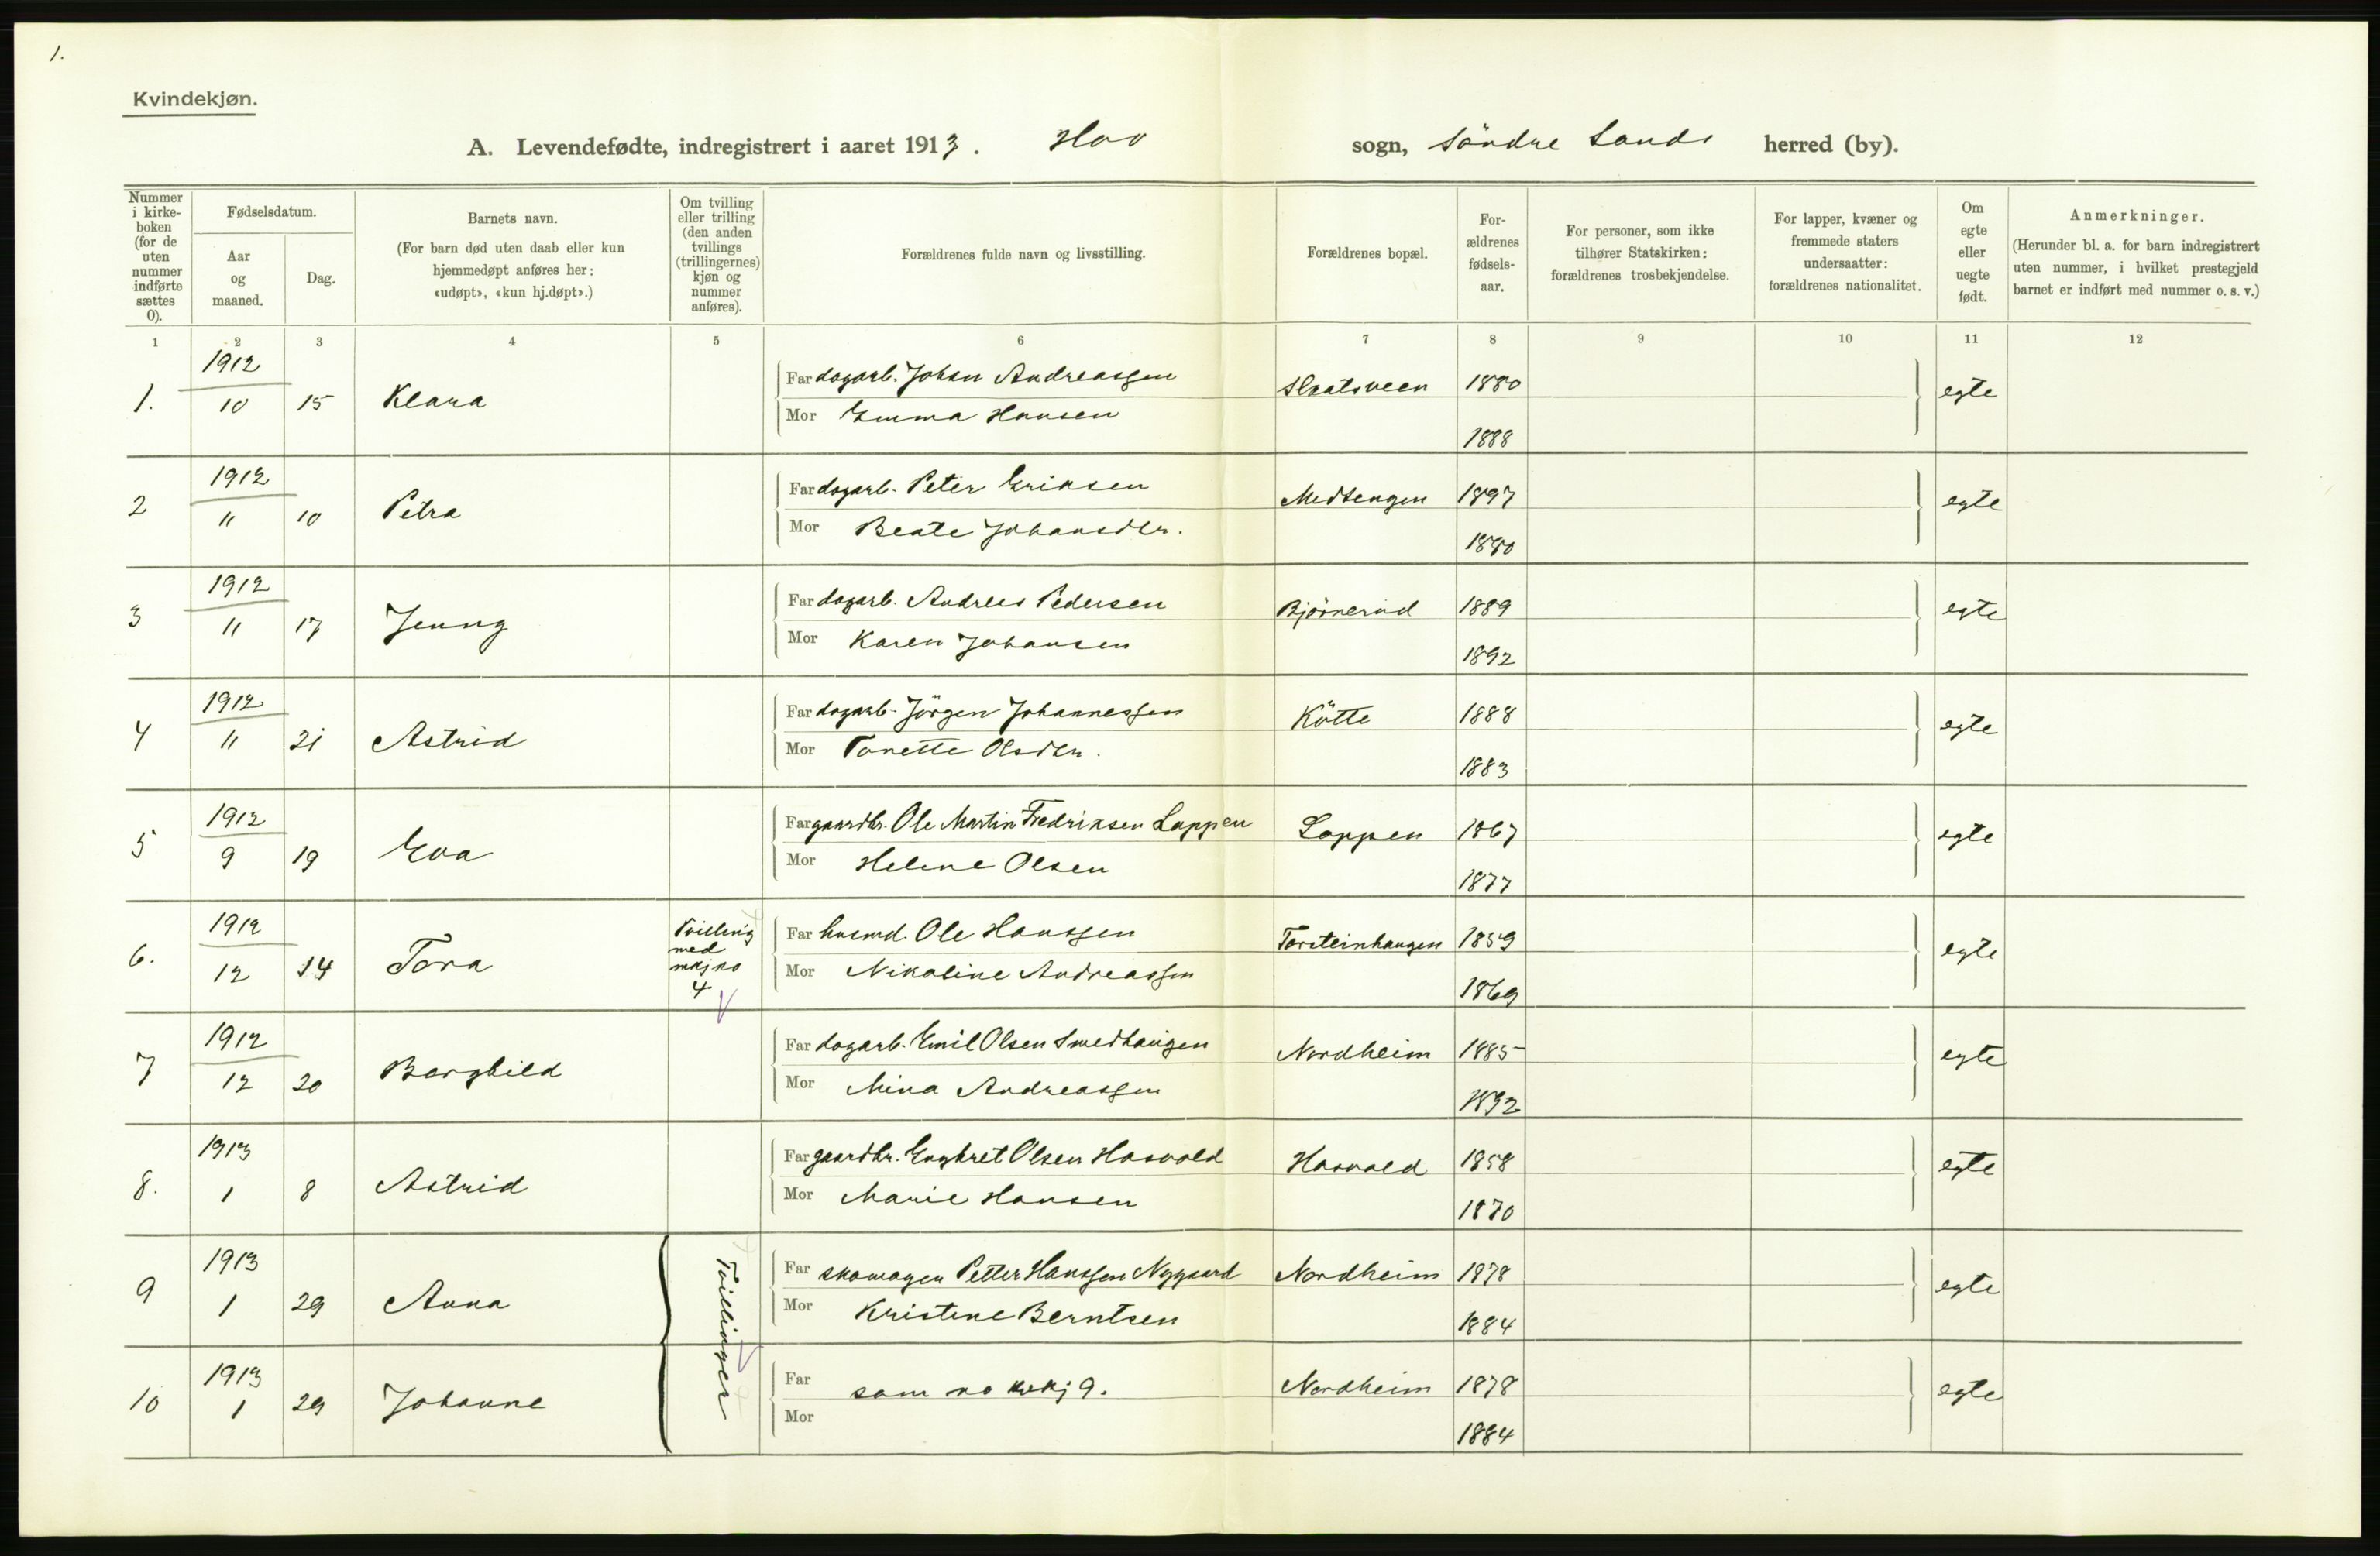 1.
Kvindekjøn.
A. Levendefødte, indregistrert i aaret 1913. Hov sogn, Söndre Lands herred (by).
Nummer i kirke-boken (for de uten nummer indførte sættes 0).
Fødselsdatum.
Aar og maaned.
Dag.
Barnets navn.
(For barn død uten daab eller kun hjemmedøpt anføres her: «udøpt», «kun hj.døpt».)
Om tvilling eller trilling (den anden tvillings (trillingernes) kjøn og nummer anføres).
Forældrenes fulde navn og livsstilling.
Forældrenes bopæl.
For-ældrenes fødsels-aar.
For personer, som ikke tilhører Statskirken: forældrenes trosbekjendelse.
For lapper, kvæner og fremmede staters undersaatter: forældrenes nationalitet.
Om egte eller uegte født.
Anmerkninger.
(Herunder bl. a. for barn indregistrert uten nummer, i hvilket prestegjeld barnet er indført med nummer o. s. v.)
1 2 3 4 5 6 7 8 9 10 11 12
1. 1912 10 15 Klara Far dagarb. Johan Andreassen Skatsveen 1880 egte
Mor Emma Hansen 1888
2 1912 11 10 Petra Far dagarb. Peter Eriksen Medtengen 1897 egte
Mor Beate Johansdtr. 1890
3 1912 11 17 Jenny Far dagarb. Andreas Pedersen Bjørnerud 1889 egte
Mor Karen Johansen 1892
4 1912 11 21 Astrid Far dagarb. Jörgen Johannessen Kötte 1888 egte
Mor Tonette Olsdtr. 1883
5 1912 9 19 Eva Far gaardbr. Ole Martin Fredriksen Loppen Loppen 1867 egte
Mor Helene Olsen 1877
6. 1912 12 14 Tora Tvilling med mkj no 4 Far husmd. Ole Hanssen Torsteinhaugen 1859 egte
Mor Nikoline Andreassen 1869
7 1912 12 20 Borghild Far dagarb. Emil Olsen Smedhaugen Nordheim 1885 egte
Mor Mina Andreassen 1892
8. 1913 1 8 Astrid Far gaardbr. Engbret Olsen Hasvold Hasvold 1858 egte
Mor Marie Hansen 1870
9 1913 1 29 Anna Tvillinger Far skomager Petter Hanssen Nygaard Nordheim 1878 egte
Mor Kristine Berntsen 1884
10 1913 1 29 Johanne Far som no kvkj 9. Nordheim 1878 egte
Mor 1884